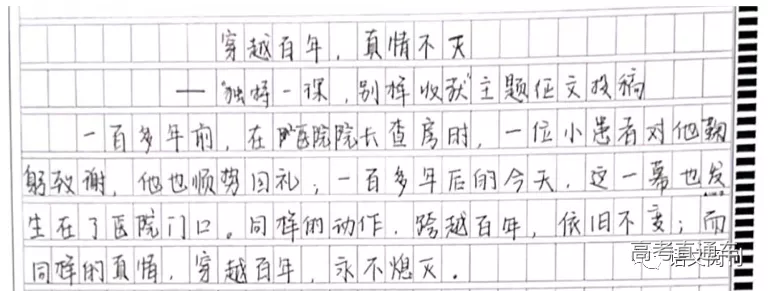 穿越百年，真情不灭
——“独特一课，别样收获”主题征文投稿
一百多年前，在医院院长查房时，一位小患者对他鞠
躬致谢，他也顺势回礼；一百多年后的今天，这一幕也发
生在了医院门口。同样的动作，跨越百年，依旧不变；而
同样的真情，穿越百年，永不熄灭。
高考直通车